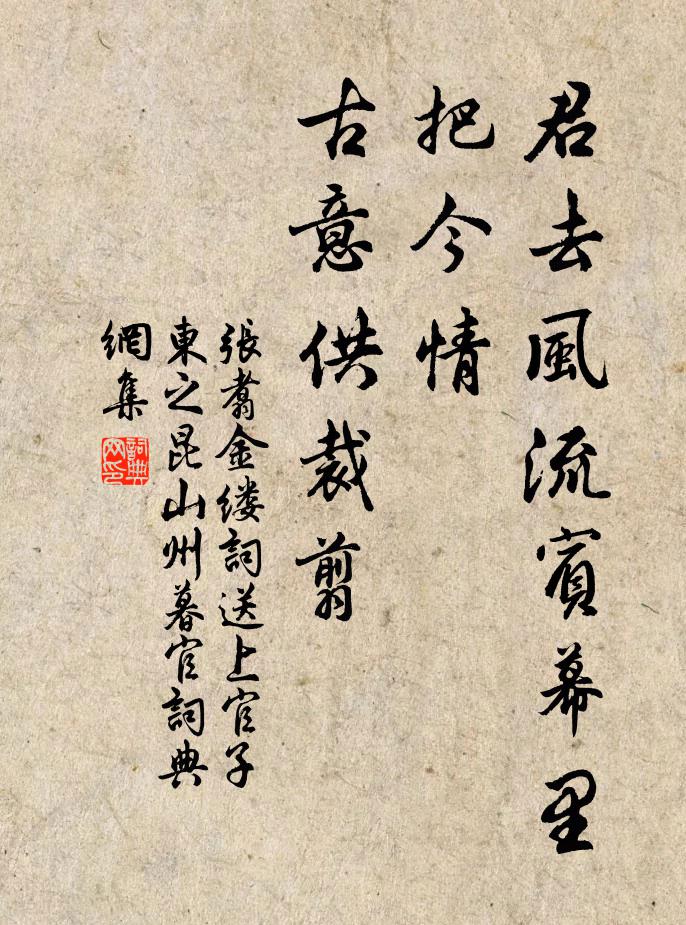 君去風流賓幕里
把今情
古意供裁翦
張翥金缕詞送上官子
東之昆山州暮官詞典
網集
詞典網印